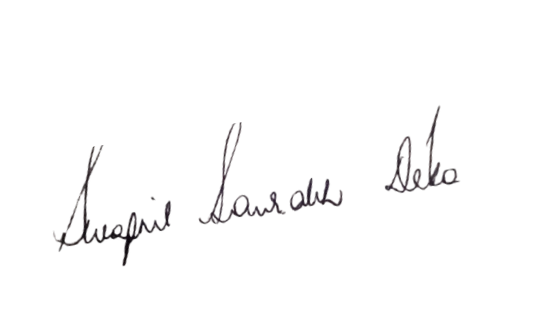 Swapnil Saurabh Deka